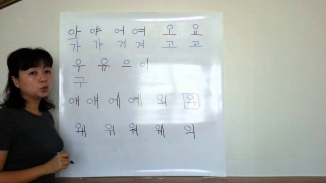 아 야 어 여 오 요
가 갸 거 겨 고 교
우 유 으 이
구
애 얘 에 예 외
왜 위 워 웨 의